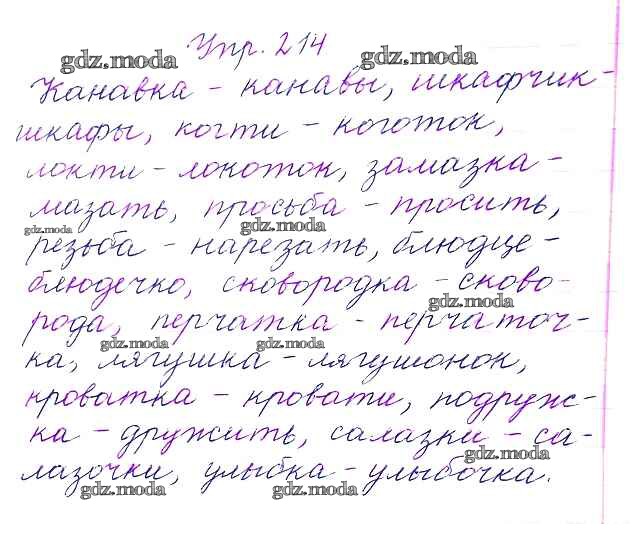 Упр. 214
gdz.moda gdz.moda
Канавка - канавы, шкафчик -
шкафы, когти - коготок,
локти - локоток, замазка -
мазать, просьба - просить,
gdz.moda gdz.moda
резьба - нарезать, блюдце -
блюдечко, сковородка - сково-
gdz.moda
рода, перчатка - перчаточ-
gdz.moda gdz.moda
ка, лягушка - лягушонок,
кроватка - кровати, подруж-
ка - дружить, салазки - са-
gdz.moda
лазочки, улыбка - улыбочка.
gdz.moda gdz.moda